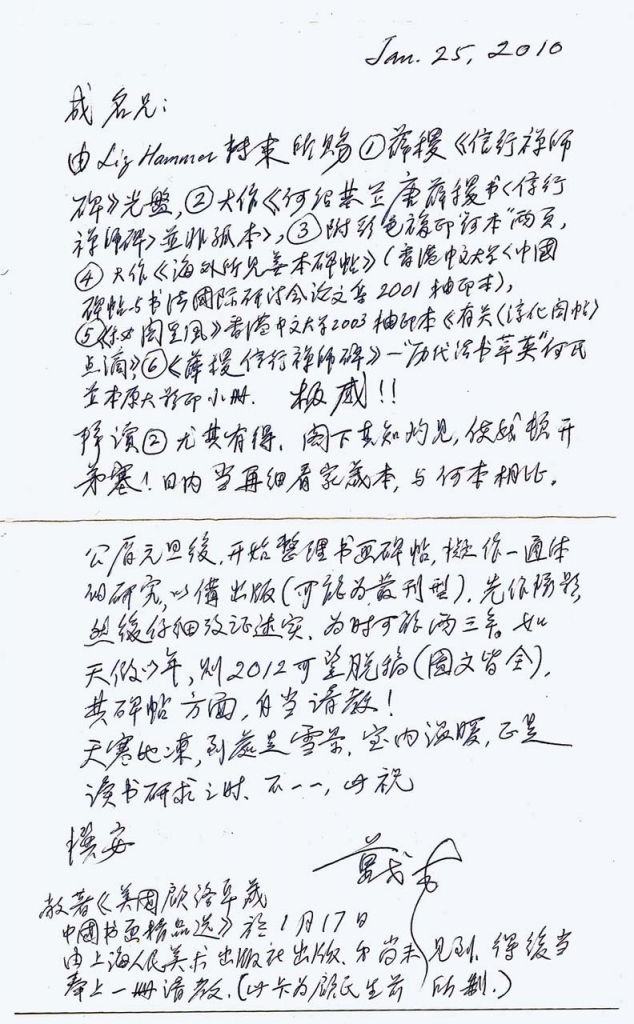 Jan. 25, 2010
成名兄：
由 Liz Hammer 转来所赐①薛稷《信行禅师
碑》光盤，②大作《何绍基並唐薛稷书〈信行
禅师碑〉並非孤本》，③附彩色複印“何本”两頁，
④大作《海外所见善本碑帖》（香港中文大学〈中國
碑帖与书法國际研讨会论文集 2001 抽印本），
⑤《秘阁皇風》香港中文大学2003抽印本《有关〈淳化阁帖〉
点滴》，⑥《薛稷信行禅师碑》—“历代法书萃英”何氏
本原大影印小册. 极感！！
拜读②尤其有得. 阁下真知灼见，使我顿开
茅塞！日内当再细看家藏本，与何本相比。
公历元旦後，开始整理书画碑帖，拟作一通体
细研究，以備出版（可能为叢刊型）. 先作
然後仔细攷证述实. 为时可能两三年. 如
天假以年，则2012可望脱稿（圖文皆全），
其碑帖方面，自当请教！
天寒地凍，到處是雪景，室内温暖，正是
读书研求之时. 不一一，此祝
撰安
敬著《美國顾洛阜藏
中國书画精品选》於1月17日
由上海人民美术出版社出版. 尚未见到. 得後当
奉上一冊请教.（此卡为顾氏生前所製.）